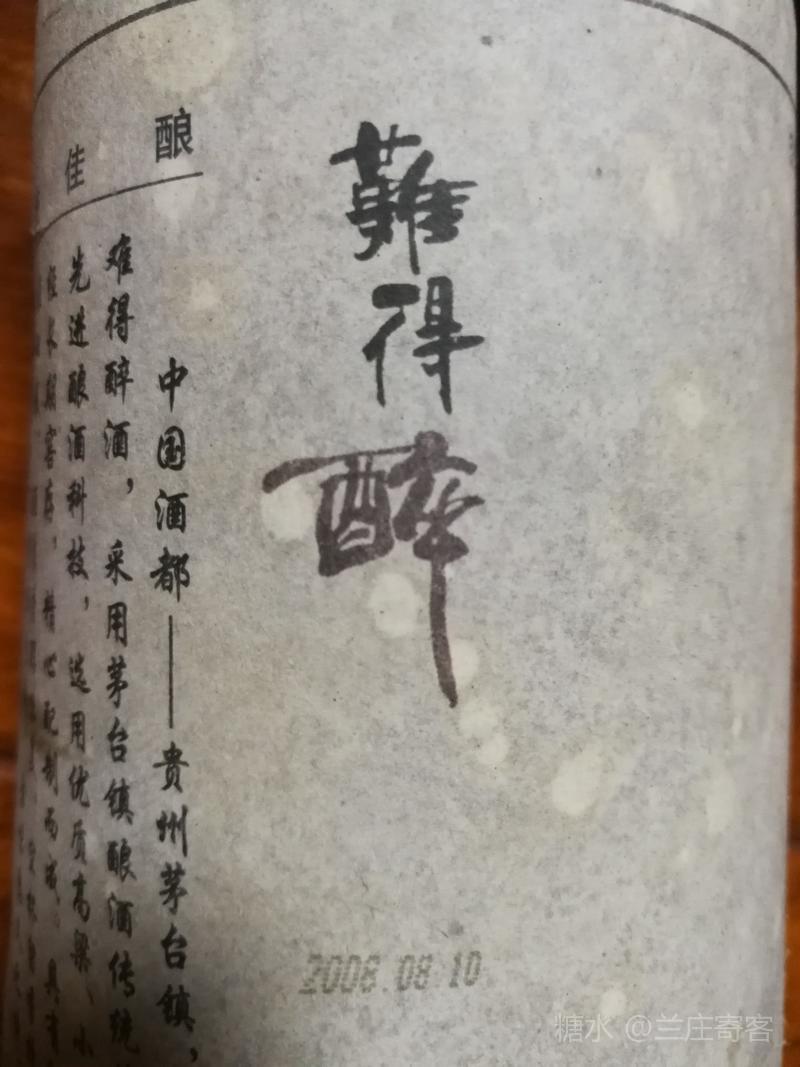 佳酿
難得醉
中国酒都——贵州茅台镇，
难得醉酒，采用茅台镇酿酒传统
先进酿酒科技，选用优质高粱、小
经长期窖存，精心配制而成。具有
2008.08.10
糖水 @兰庄寄客